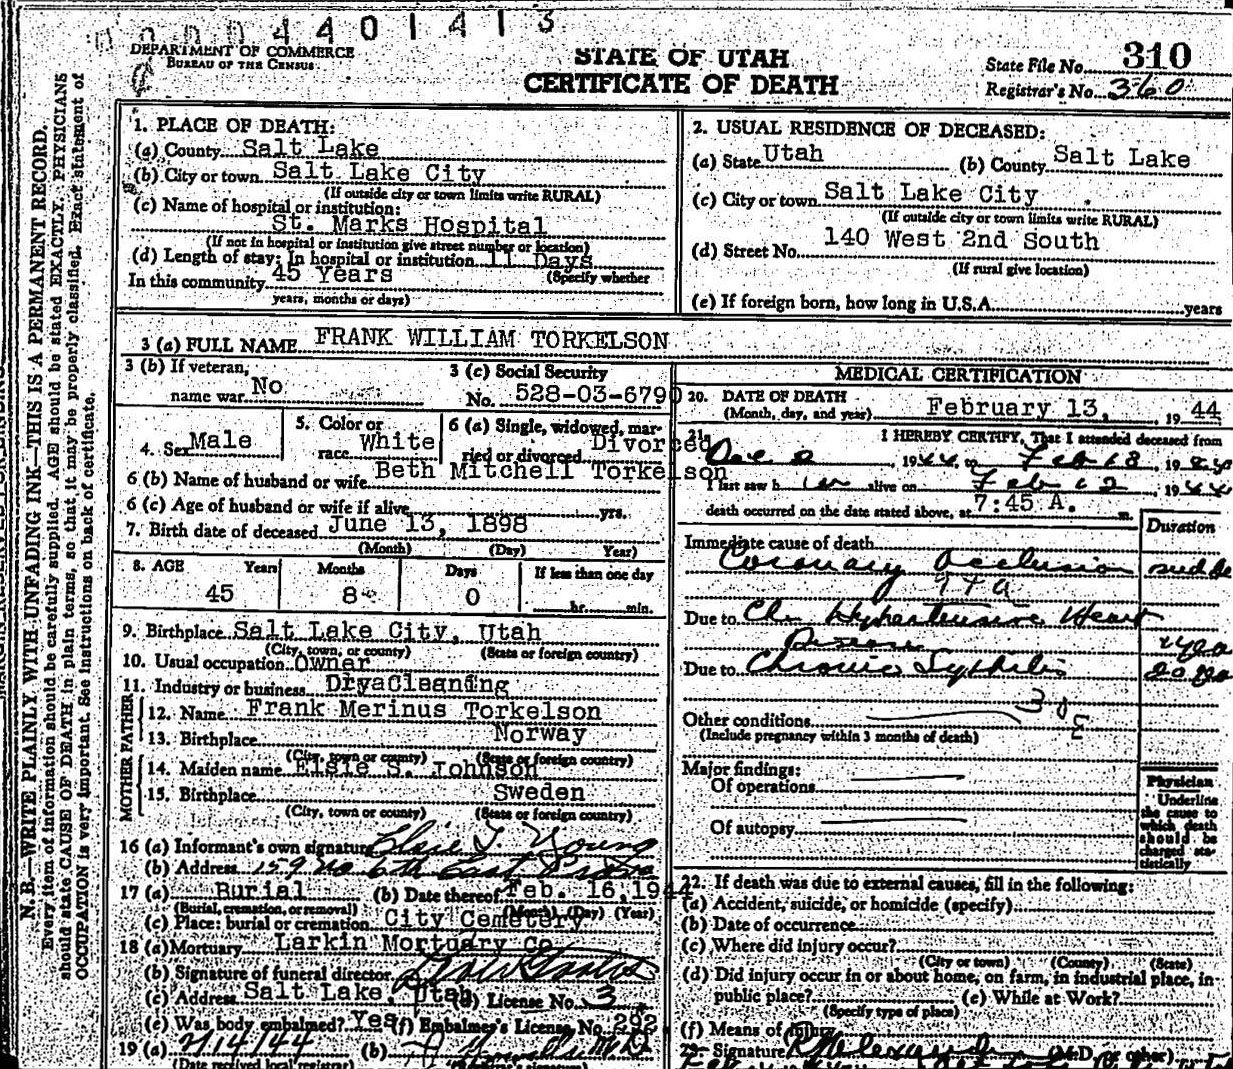 4401413
DEPARTMENT OF COMMERCE
BUREAU OF THE CENSUS
STATE OF UTAH
CERTIFICATE OF DEATH
State File No. 310
Registrar's No. 360
N. B.—WRITE PLAINLY WITH UNFADING INK—THIS IS A PERMANENT RECORD.
Every item of information should be carefully supplied. AGE should be stated EXACTLY. PHYSICIANS
should state CAUSE OF DEATH in plain terms, so that it may be properly classified. Exact statement of
OCCUPATION is very important. See instructions on back of certificate.
1. PLACE OF DEATH:
(a) County Salt Lake
(b) City or town Salt Lake City
(If outside city or town limits write RURAL)
(c) Name of hospital or institution:
St. Marks Hospital
(If not in hospital or institution give street number or location)
(d) Length of stay: In hospital or institution 11 Days
In this community 45 Years (Specify whether
years, months or days)
2. USUAL RESIDENCE OF DECEASED:
(a) State Utah (b) County Salt Lake
(c) City or town Salt Lake City
(If outside city or town limits write RURAL)
(d) Street No. 140 West 2nd South
(If rural give location)
(e) If foreign born, how long in U.S.A. years
3 (a) FULL NAME FRANK WILLIAM TORKELSON
3 (b) If veteran, name war No
3 (c) Social Security No. 528-03-6790
4. Sex Male
5. Color or race White
6 (a) Single, widowed, married or divorced Divorced
6 (b) Name of husband or wife Beth Mitchell Torkelson
6 (c) Age of husband or wife if alive yrs.
7. Birth date of deceased June 13, 1898
(Month) (Day) Year)
8. AGE Years Months Days If less than one day
45 8 0 hr. min.
9. Birthplace Salt Lake City, Utah
(City, town, or county) (State or foreign country)
10. Usual occupation Owner
11. Industry or business DryaCleaning
FATHER
12. Name Frank Merinus Torkelson
13. Birthplace Norway
(City, town or county) (State or foreign country)
MOTHER
14. Maiden name Elsie S. Johnson
15. Birthplace Sweden
(City, town or county) (State or foreign country)
16 (a) Informant's own signature Elsie T. Young
(b) Address 159 No 6th East Provo
17 (a) Burial (b) Date thereof Feb. 16, 1944
(Burial, cremation, or removal) (Month) (Day) (Year)
(c) Place: burial or cremation City Cemetery
18 (a) Mortuary Larkin Mortuary Co
(b) Signature of funeral director
(c) Address Salt Lake, Utah License No. 3
(e) Was body embalmed? Yes (f) Embalmer's License No. 292
19 (a) 2/14/44 (b)
(Date received local registrar)
MEDICAL CERTIFICATION
20. DATE OF DEATH
(Month, day, and year) February 13, 1944
21. I HEREBY CERTIFY, That I attended deceased from
Dec 2, 1944, to Feb 18 19
I last saw him alive on Feb 12, 1944
death occurred on the date stated above, at 7:45 A. m.
Duration
Immediate cause of death
Coronary Occlusion
94a
Due to Ch. Hypertensive Heart
Disease
Due to Chronic Syphilis
30E
Other conditions
(Include pregnancy within 3 months of death)
Major findings:
Of operations
Of autopsy
Physician
Underline
the cause to
which death
should be
charged sta-
tistically
22. If death was due to external causes, fill in the following:
(a) Accident, suicide, or homicide (specify)
(b) Date of occurrence
(c) Where did injury occur?
(City or town) (County) (State)
(d) Did injury occur in or about home, on farm, in industrial place, in
public place? (e) While at Work?
(Specify type of place)
(f) Means of injury
23. Signature (M.D. or other)